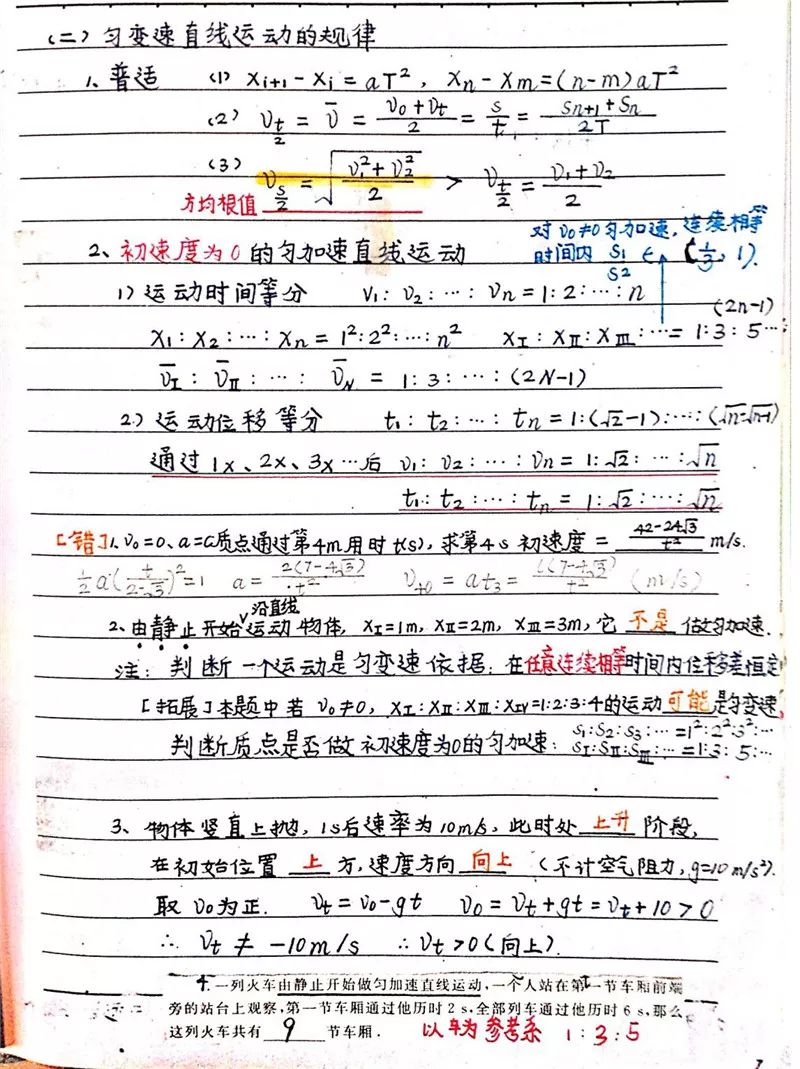 (二) 匀变速直线运动的规律
1、普适 (1) Xᵢ₊₁ - Xᵢ = aT², Xₙ - Xₘ = (n-m)aT²
(2) v_{t/2} = v̄ = (v₀+vₜ)/2 = s/t = (Sₙ₊₁+Sₙ)/2T
(3) v_{s/2} = √((v₁²+v₂²)/2) > v_{t/2} = (v₁+v₂)/2
方均根值
对v₀≠0匀加速，连续相等
时间内 S₁/S₂ ∈ (1/3, 1).
2、初速度为0的匀加速直线运动
1) 运动时间等分 v₁: v₂: ⋯ : vₙ = 1:2: ⋯ :n
(2n-1)
X₁: X₂: ⋯ : Xₙ = 1²:2²: ⋯ :n² X_Ⅰ: X_Ⅱ: X_Ⅲ: ⋯ = 1:3:5⋯
v̄_Ⅰ: v̄_Ⅱ: ⋯ : v̄_N = 1:3: ⋯ :(2N-1)
2.) 运动位移等分 t₁: t₂: ⋯ : tₙ = 1:(√2-1): ⋯ :(√n-√n-1)
通过1x、2x、3x⋯后 v₁: v₂: ⋯ : vₙ = 1:√2: ⋯ :√n
t₁: t₂: ⋯ : tₙ = 1:√2: ⋯ :√n
[错]1、v₀=0、a=C质点通过第4m用时t(s), 求第4s初速度 = (42-24√3)/t² m/s.
½a(t/(2-√3))²=1 a = 2(7-4√3)/t² v₄₀ = at₃ = (7-4√3)/t² (m/s)
2、由静止开始沿直线运动物体, X_Ⅰ=1m, X_Ⅱ=2m, X_Ⅲ=3m, 它 不是 做匀加速.
注: 判断一个运动是匀变速依据: 在任意连续相等时间内位移差恒定
[拓展]本题中若v₀≠0, X_Ⅰ:X_Ⅱ:X_Ⅲ:X_Ⅳ=1:2:3:4的运动可能是匀变速.
判断质点是否做初速度为0的匀加速: S₁:S₂:S₃: ⋯ =1²:2²:3²: ⋯
S_Ⅰ:S_Ⅱ:S_Ⅲ: ⋯ =1:3:5: ⋯
3、物体竖直上抛, 1s后速率为10m/s, 此时处 上升 阶段,
在初始位置 上 方, 速度方向 向上 (不计空气阻力, g=10m/s²).
取v₀为正. vₜ = v₀-gt v₀ = vₜ+gt = vₜ+10>0
∴ vₜ ≠ -10m/s ∴ vₜ>0(向上).
4. 一列火车由静止开始做匀加速直线运动,一个人站在第1节车厢前端
旁的站台上观察,第一节车厢通过他历时2 s,全部列车通过他历时6 s,那么
这列火车共有 9 节车厢. 以车为参考系 1:3:5